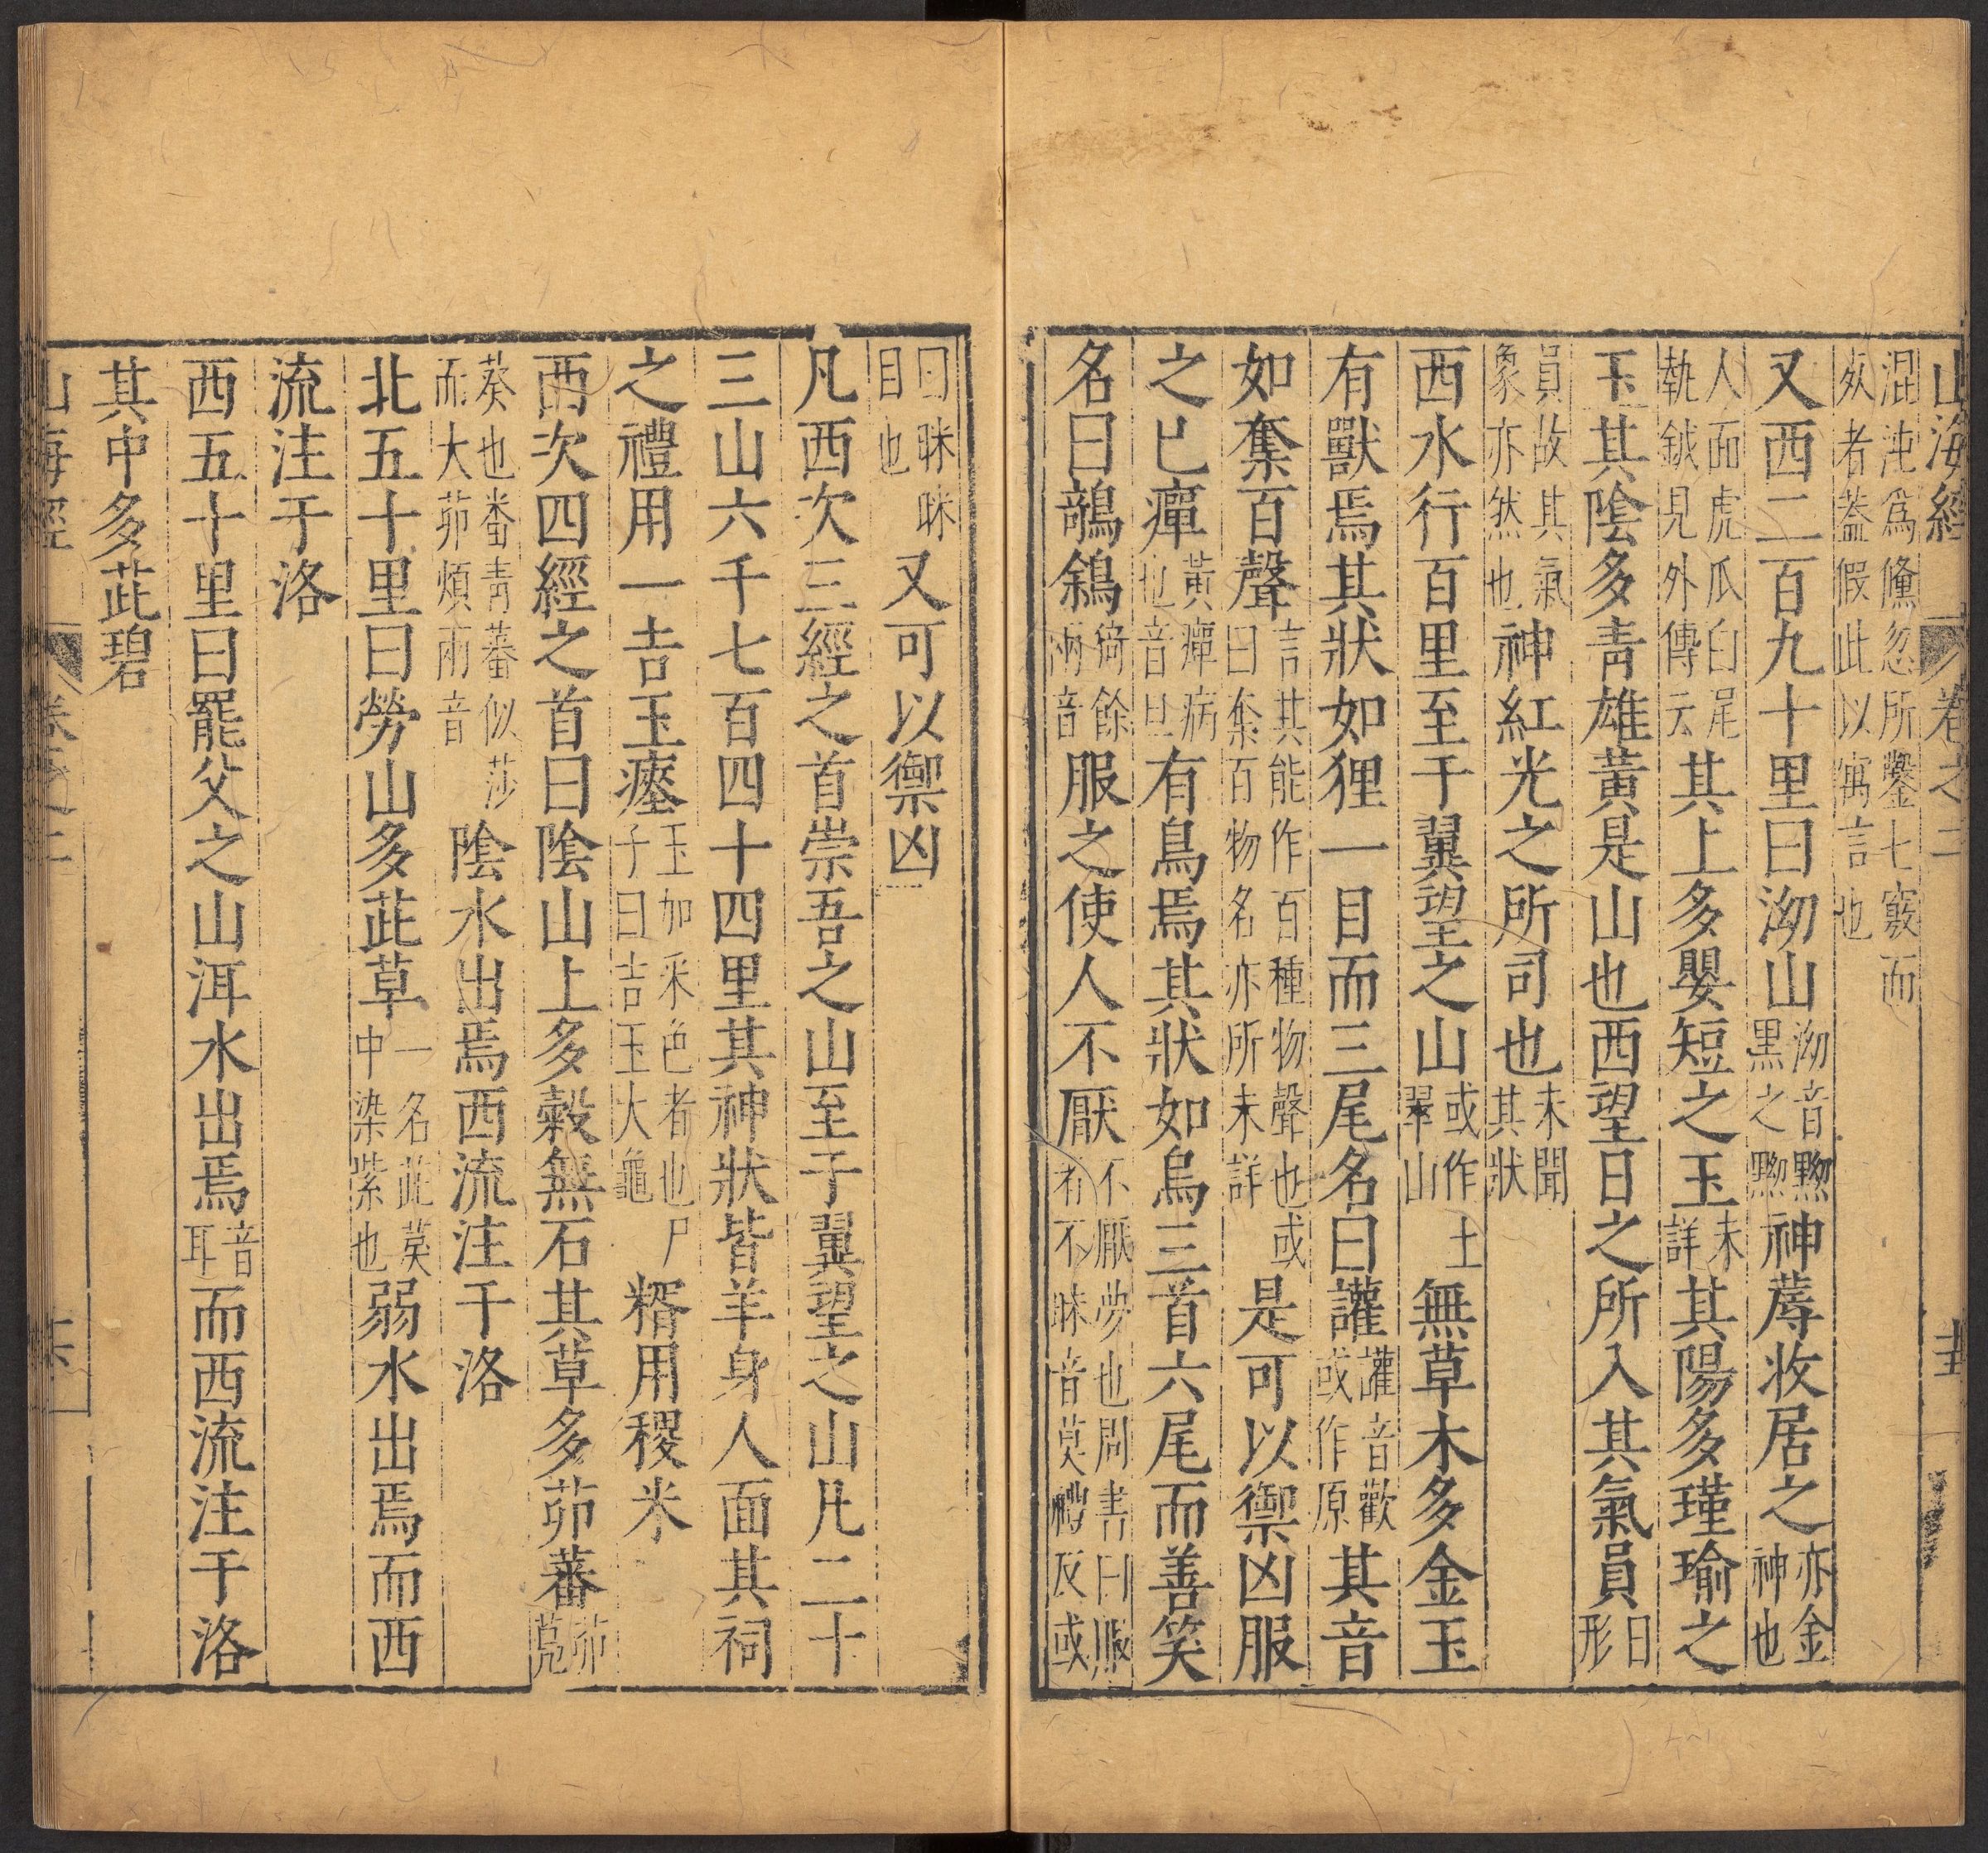 山海經 卷之二
混沌爲儵忽所鑿七竅而
𣧑者葢假此以寓言也
又西二百九十里曰泑山泑音黝黑之黝神蓐收居之亦金神也
人面虎爪白尾執鉞見外傳云其上多嬰短之玉未詳其陽多瑾瑜之
玉其陰多青雄黃是山也西望日之所入其氣員日形
員故其氣象亦然也神紅光之所司也未聞其狀
西水行百里至于翼望之山或作土翠山無草木多金玉
有獸焉其狀如狸一目而三尾名曰讙讙音歡或作原其音
如奪百聲言其能作百種物聲也或曰奪百物名亦所未詳是可以禦凶服
之已癉黃癉病也音旦有鳥焉其狀如烏三首六尾而善笑
名曰鵸鵌猗餘兩音服之使人不厭不厭夢也周書曰服者不昧音莫禮反或
曰眯眯目也又可以禦凶
凡西次三經之首崇吾之山至于翼望之山凡二十
三山六千七百四十四里其神狀皆羊身人面其祠
之禮用一吉玉瘞玉加采色者也尸子曰吉玉大龜糈用稷米
西次四經之首曰陰山上多榖無石其草多茆蕃茆鳧
葵也番青蕃似莎而大茆煩兩音陰水出焉西流注于洛
北五十里曰勞山多茈草一名茈莫中染紫也弱水出焉而西
流注于洛
西五十里曰罷父之山洱水出焉音耳而西流注于洛
其中多茈碧
山海經 卷之二